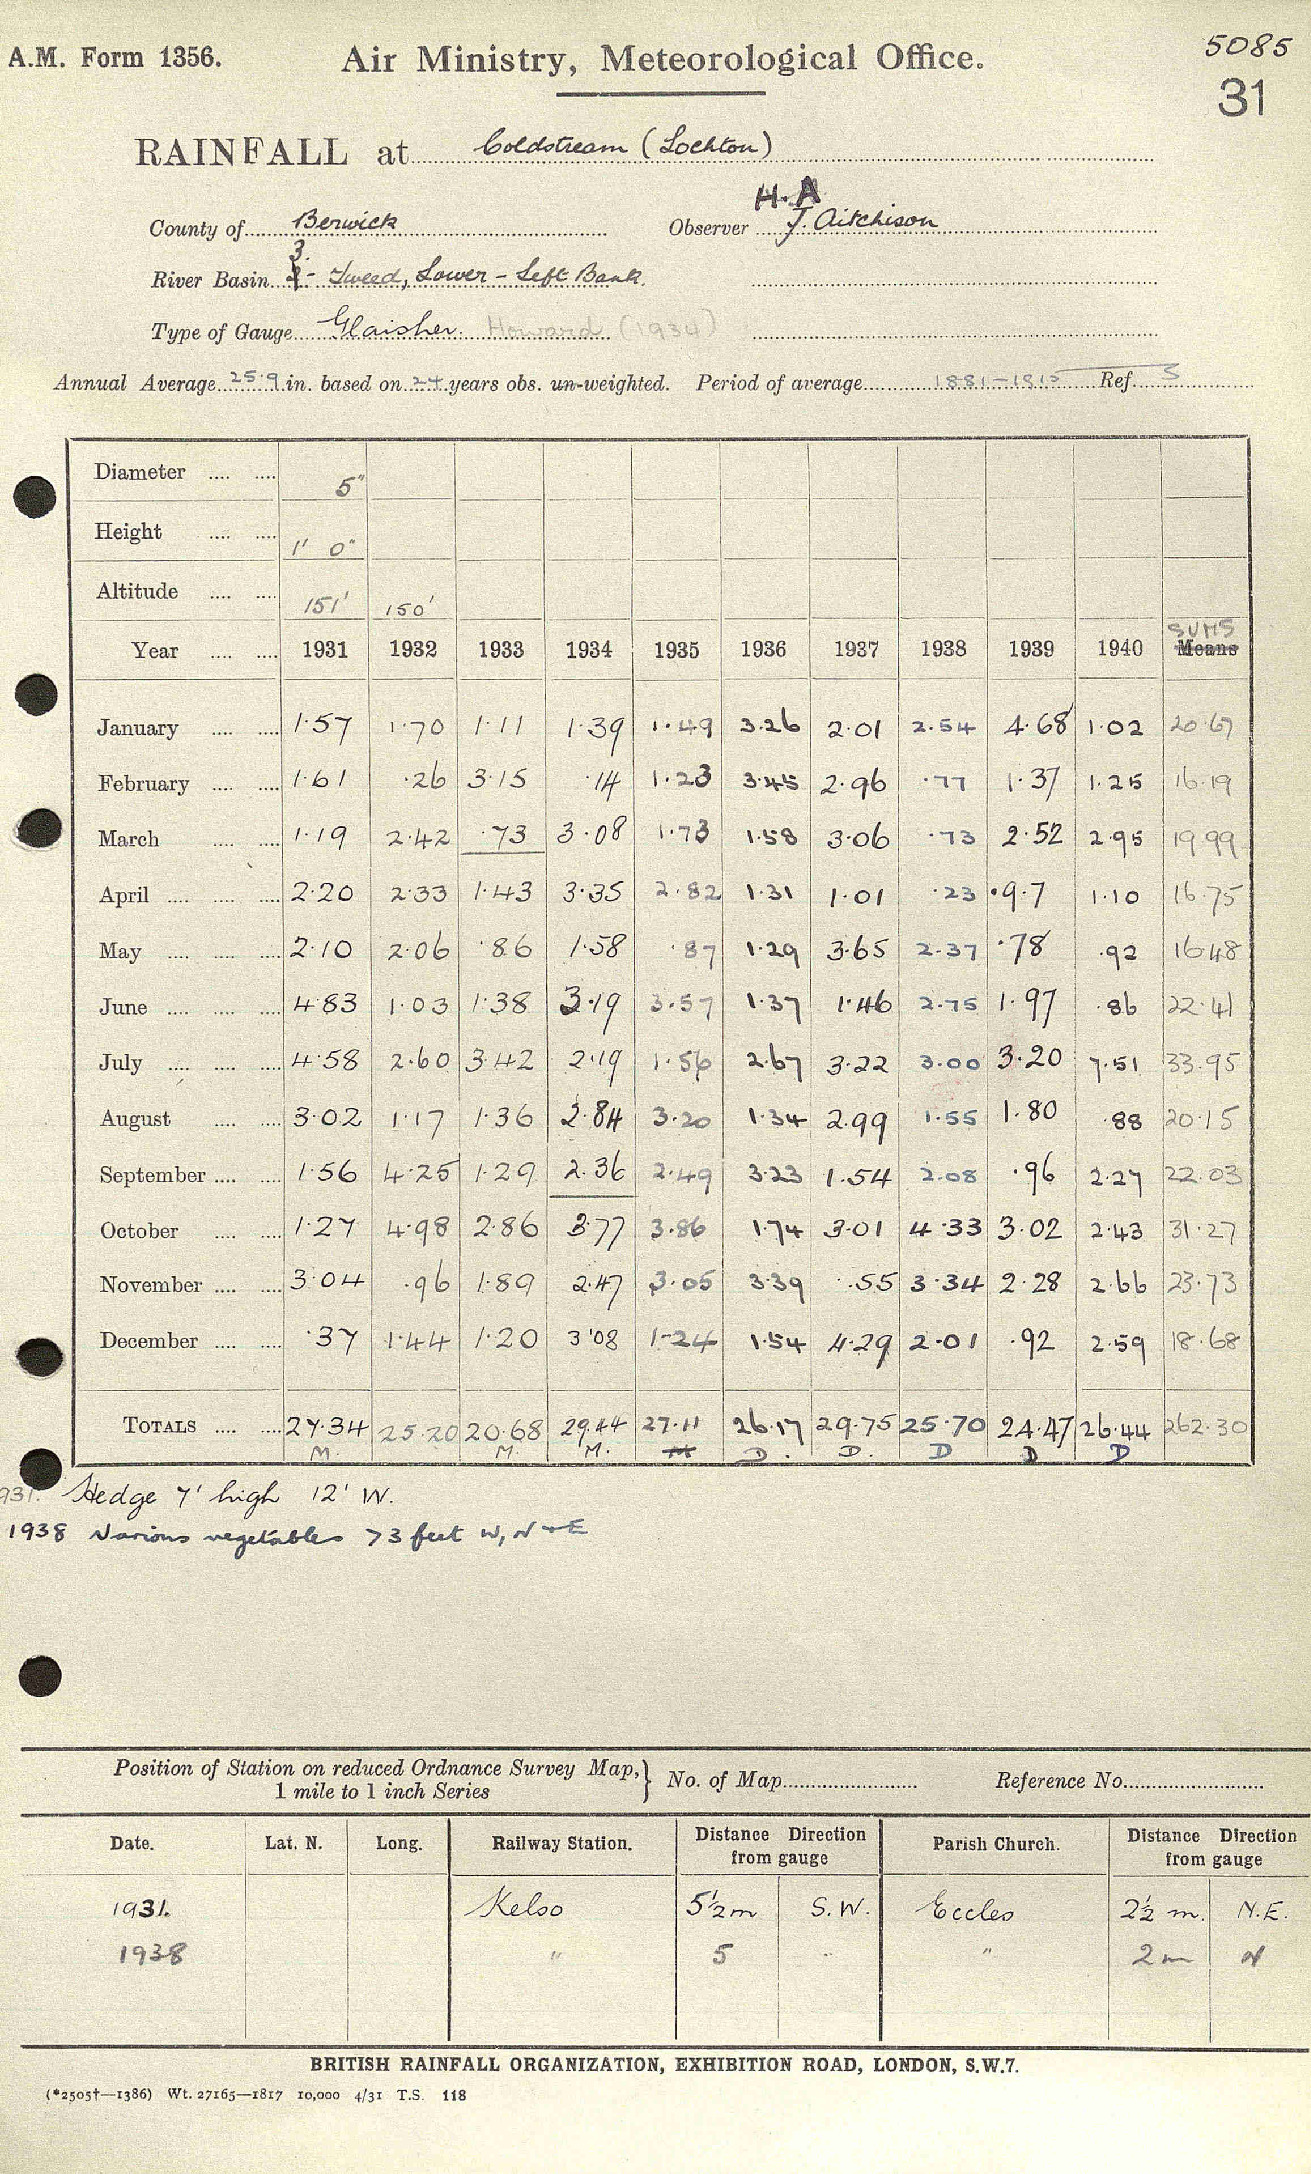 A.M. Form 1356.
Air Ministry, Meteorological Office.
5085
31
RAINFALL at Coldstream (Lochton)
H. A
County of Berwick Observer J. Aitchison
3.
River Basin - Tweed, Lower - Left Bank.
Type of Gauge Glaisher. Howard (1934)
Annual Average 25.9 in. based on 24 years obs. un-weighted. Period of average 1881-1915 Ref. 3
Diameter .... .... 5"
Height .... .... 1' 0"
Altitude .... .... 151' 150'
SUMS
Year .... .... 1931 1932 1933 1934 1935 1936 1937 1938 1939 1940 Means
January .... .... 1.57 1.70 1.11 1.39 1.49 3.26 2.01 2.54 4.68 1.02 20.67
February .... .... 1.61 .26 3.15 .14 1.23 3.45 2.96 .77 1.37 1.25 16.19
March .... .... 1.19 2.42 .73 3.08 1.73 1.58 3.06 .73 2.52 2.95 19.99
April .... .... .... 2.20 2.33 1.43 3.35 2.82 1.31 1.01 .23 .97 1.10 16.75
May .... .... .... 2.10 2.06 .86 1.58 .87 1.29 3.65 2.37 .78 .92 16.48
June .... .... .... 4.83 1.03 1.38 3.19 3.57 1.37 1.46 2.75 1.97 .86 22.41
July .... .... .... 4.58 2.60 3.42 2.19 1.56 2.67 3.22 3.00 3.20 7.51 33.95
August .... .... 3.02 1.17 1.36 2.84 3.20 1.34 2.99 1.55 1.80 .88 20.15
September .... .... 1.56 4.25 1.29 2.36 2.49 3.23 1.54 2.08 .96 2.27 22.03
October .... .... 1.27 4.98 2.86 3.77 3.86 1.74 3.01 4.33 3.02 2.43 31.27
November .... .... 3.04 .96 1.89 2.47 3.05 3.39 .55 3.34 2.28 2.66 23.73
December .... .... .37 1.44 1.20 3.08 1.24 1.54 4.29 2.01 .92 2.59 18.68
TOTALS .... .... 27.34 25.20 20.68 29.44 27.11 26.17 29.75 25.70 24.47 26.44 262.30
M. M. M. M D. D. D D D
931. Hedge 7' high 12' W.
1938 Various vegetables >3 feet W, N + E
Position of Station on reduced Ordnance Survey Map,} No. of Map Reference No.
1 mile to 1 inch Series
Date. Lat. N. Long. Railway Station. Distance Direction from gauge Parish Church. Distance Direction from gauge
1931. Kelso 5½ m S.W. Eccles 2½ m. N.E.
1938 " 5 " " 2 m N
BRITISH RAINFALL ORGANIZATION, EXHIBITION ROAD, LONDON, S.W.7.
(*2505†—1386) Wt. 27165—1817 10,000 4/31 T.S. 118